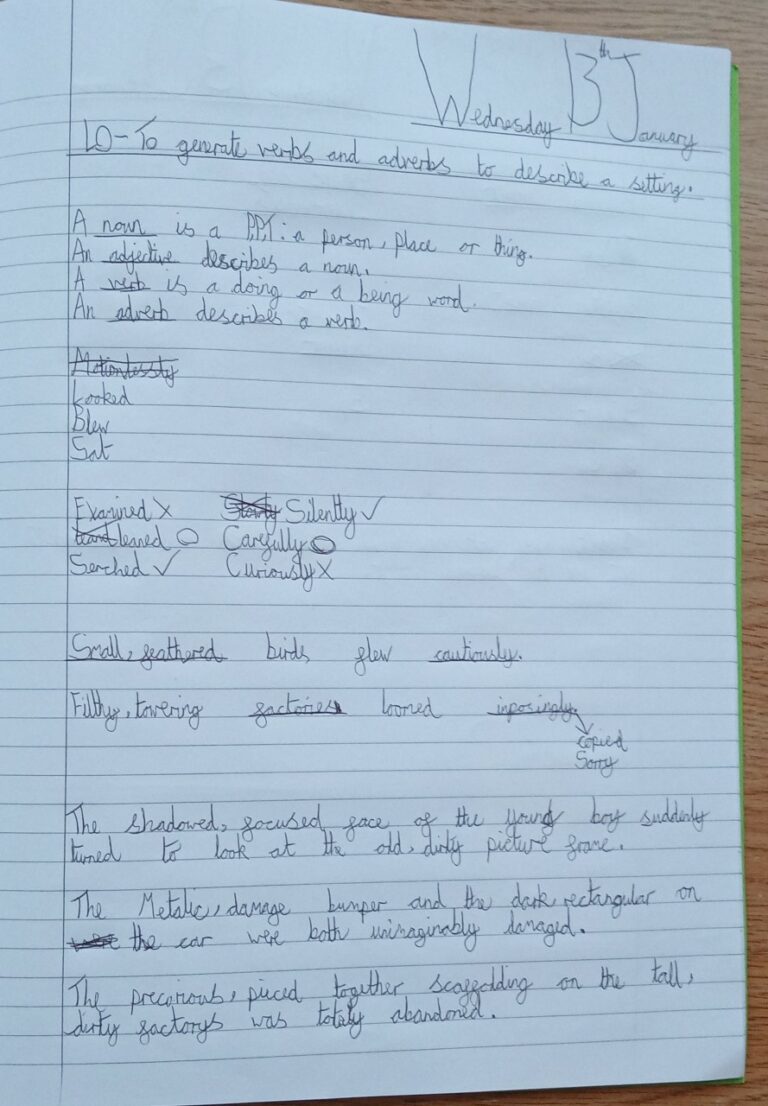 Wednesday 13th January
LO-To generate verbs and adverbs to describe a setting.
A noun is a P,P,T: a person, place or thing.
An adjective describes a noun.
A verb is a doing or a being word.
An adverb describes a verb.
Motionlessly
Looked
Blew
Sat
Examined X Silently ✓
leaned O Carefully O
Serched ✓ Curiously X
Small, feathered birds flew cautiously.
Filthy, towering factories loomed inposingly.
copied
Sorry
The shadowed, focused face of the young boy suddenly
turned to look at the old, dirty picture frame.
The Metalic, damage bumper and the dark rectangular on
the car were both unimaginably damaged.
The precarious, pieced together scaffolding on the tall,
dirty factorys was totaly abandoned.